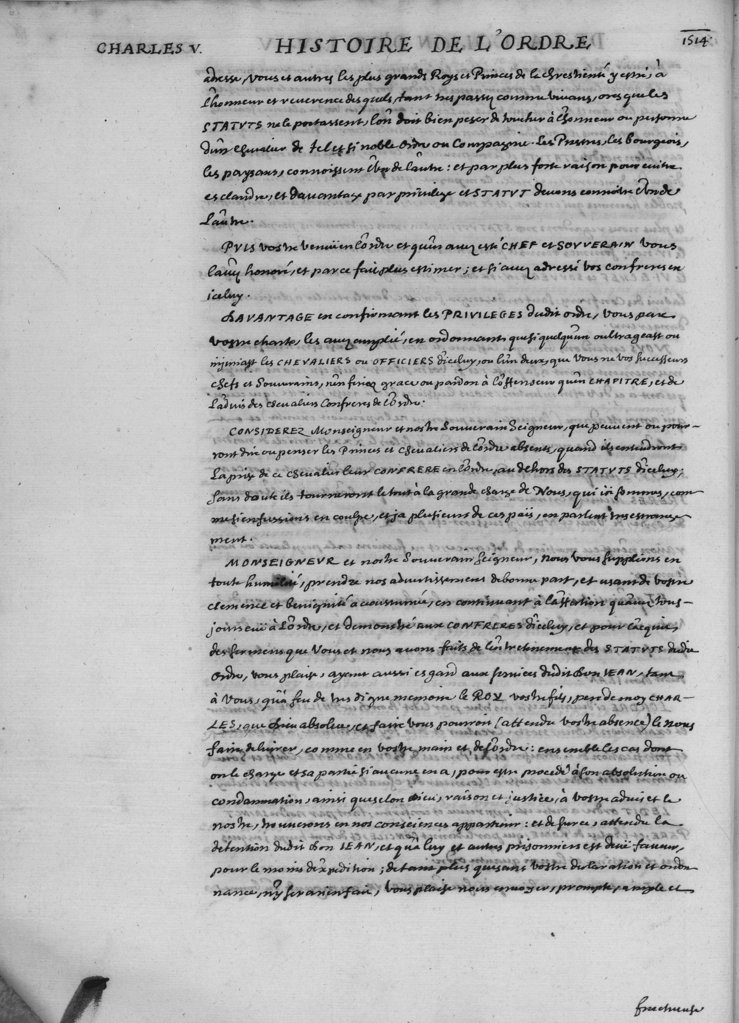 CHARLES V. HISTOIRE DE L'ORDRE 1514
adresse, vous et autres les plus grands Roys et Princes de la Chrestienté y estré, à
l'honneur et reverence desquels, tant tres passez comme vivans, ores que les
STATVTS ne le portassent, lon doit bien peser de toucher à l'honneur ou personne
d'un Chevalier de tel et si noble Ordre ou Compagnie. Les Prestres, les bourgeois,
les paysans, connoissent l'un de l'autre: et par plus forte raison pour eviter
esclandre, et davantage par privilege et STATVT devons connoitre l'un de
l'autre.
PVIS vostre venue en l'ordre et qu'en avez esté CHEF et SOVVERAIN vous
l'avez honoré, et par ce fait plus estimer; et si avez adressé vos confreres en
iceluy.
DAVANTAGE en confirmant les PRIVILEGES dudit ordre, vous par
vostre charte, les avez amplié, en ordonnant que si quelqu'un oultrageast ou
injuriast les CHEVALIERS ou OFFICIERS d'iceluy, ou l'un d'eux, que vous ne vos successeurs
Chefs et Souverains, n'en feriez grace ou pardon à l'offenseur qu'en CHAPITRE, et de
l'advis des chevaliers Confreres de l'ordre.
CONSIDEREZ Monseigneur et nostre Souverain Seigneur, que peuvent ou pour-
ront dire ou penser les Princes et chevaliers de l'ordre absents, quand ils entendront
la prise de ce chevalier leur CONFRERE en l'ordre, au dehors des STATVTS d'iceluy;
sans doute ils tourneront le tout à la grande charge de Nous, qui icy sommes, com-
me si en fussions en coulpe, et ja plusieurs de ces païs, en parlent tres estrange-
ment.
MONSEIGNEVR et nostre Souverain Seigneur, nous vous supplions en
toute humilité, prendre nos advertissemens de bonne part, et usant de vostre
clemence et benignité accoustumée, en continuant à l'affection qu'avez tous-
jours eüe à l'Ordre, et demonstré aux CONFRERES d'iceluy, et pour l'acquit
des sermens que vous et nous avons faits de l'entretenement des STATVTS dudit
Ordre, vous plaise, ayant aussi esgard aux services dudit Don IEAN, tant
à vous, qu'à feu de tres digne memoire le ROY vostre fils, pere de moy CHAR-
LES, que Dieu absolve, et faire vous pourrons (attendu vostre absence) le nous
faire delivrer, comme en vostre main et de l'ordre: ensemble les cas dont
on le charge et sa partie si aucune en a, pour estre procedé à son absolution ou
condamnation, ainsi que selon Dieu, raison et justice, à vostre advis et le
nostre, trouverons en nos consciences appartenir: et de force, attendu la
detention dudit Don IEAN, et qu'à luy et autres prisonniers est deüe faveur,
pour le moins d'expedition; de tant plus que sans vostre declaration et ordon-
nance, n'y sera rien fait, vous plaise nous envoyer, prompte, ample et
fructueuse